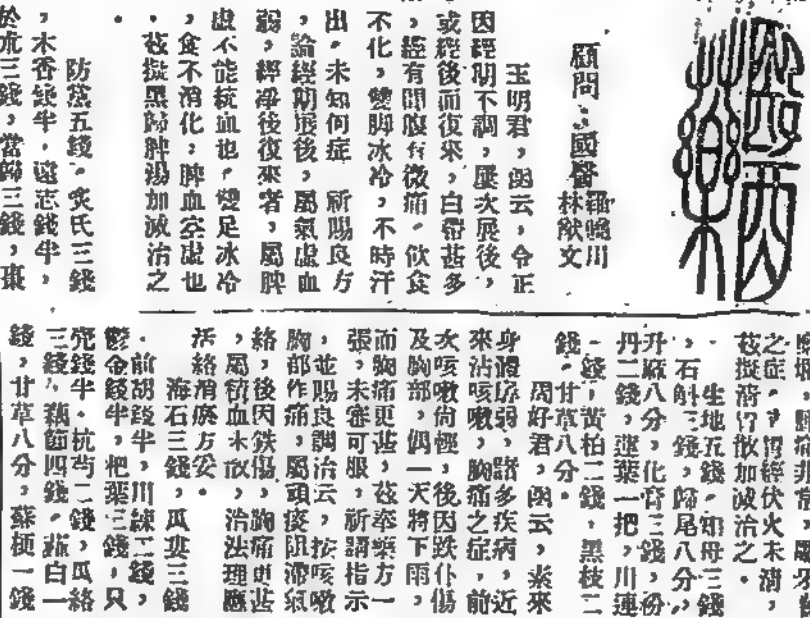 顧問:國醫
林猷文
王明君,函云,令正
因經期不調,屢次展後,
或經後而復來,白帶甚多
,經有間腹有微痛。飲食
不化,雙脚冰冷,不時汗
出,未知何症 祈賜良方
,論經期展後,屬氣虛血
弱,經淨後復來者,屬脾
虛不能統血也,雙足冰冷
,食不消化,脾血空虛也
,茲擬黑歸脾湯加減治之
。
防黨五錢。炙芪三錢
,木香錢半,遠志錢半,
於朮三錢,當歸三錢,棗
之症。胃經伏火未清,
茲擬清胃散加減治之。
生地五錢。知母三錢
,石斛三錢,歸尾八分,
升麻八分,化膏三錢,粉
丹二錢,蓮葉一把,川連
一錢,黃柏二錢,黑枝二
錢。甘草八分。
周好君,函云,素來
身體孱弱,諸多疾病,近
來沾咳嗽,胸痛之症,前
次咳嗽尚輕,後因跌仆傷
及胸部,偶一天將下雨,
而胸痛更甚,茲奉藥方一
張,未審可服,祈請指示
,並賜良調治云,按咳嗽
胸部作痛,屬頑痰阻滯氣
絡,後因跌傷,胸痛更甚
,屬積血未散,治法理應
活絡消瘀方安。
海石三錢,瓜蔞三錢
,前胡錢半,川楝二錢,
鬱金錢半,杷葉三錢,只
壳錢半。杭芍二錢,瓜絡
三錢,藕節四錢。薤白一
錢,甘草八分,蘇梗一錢